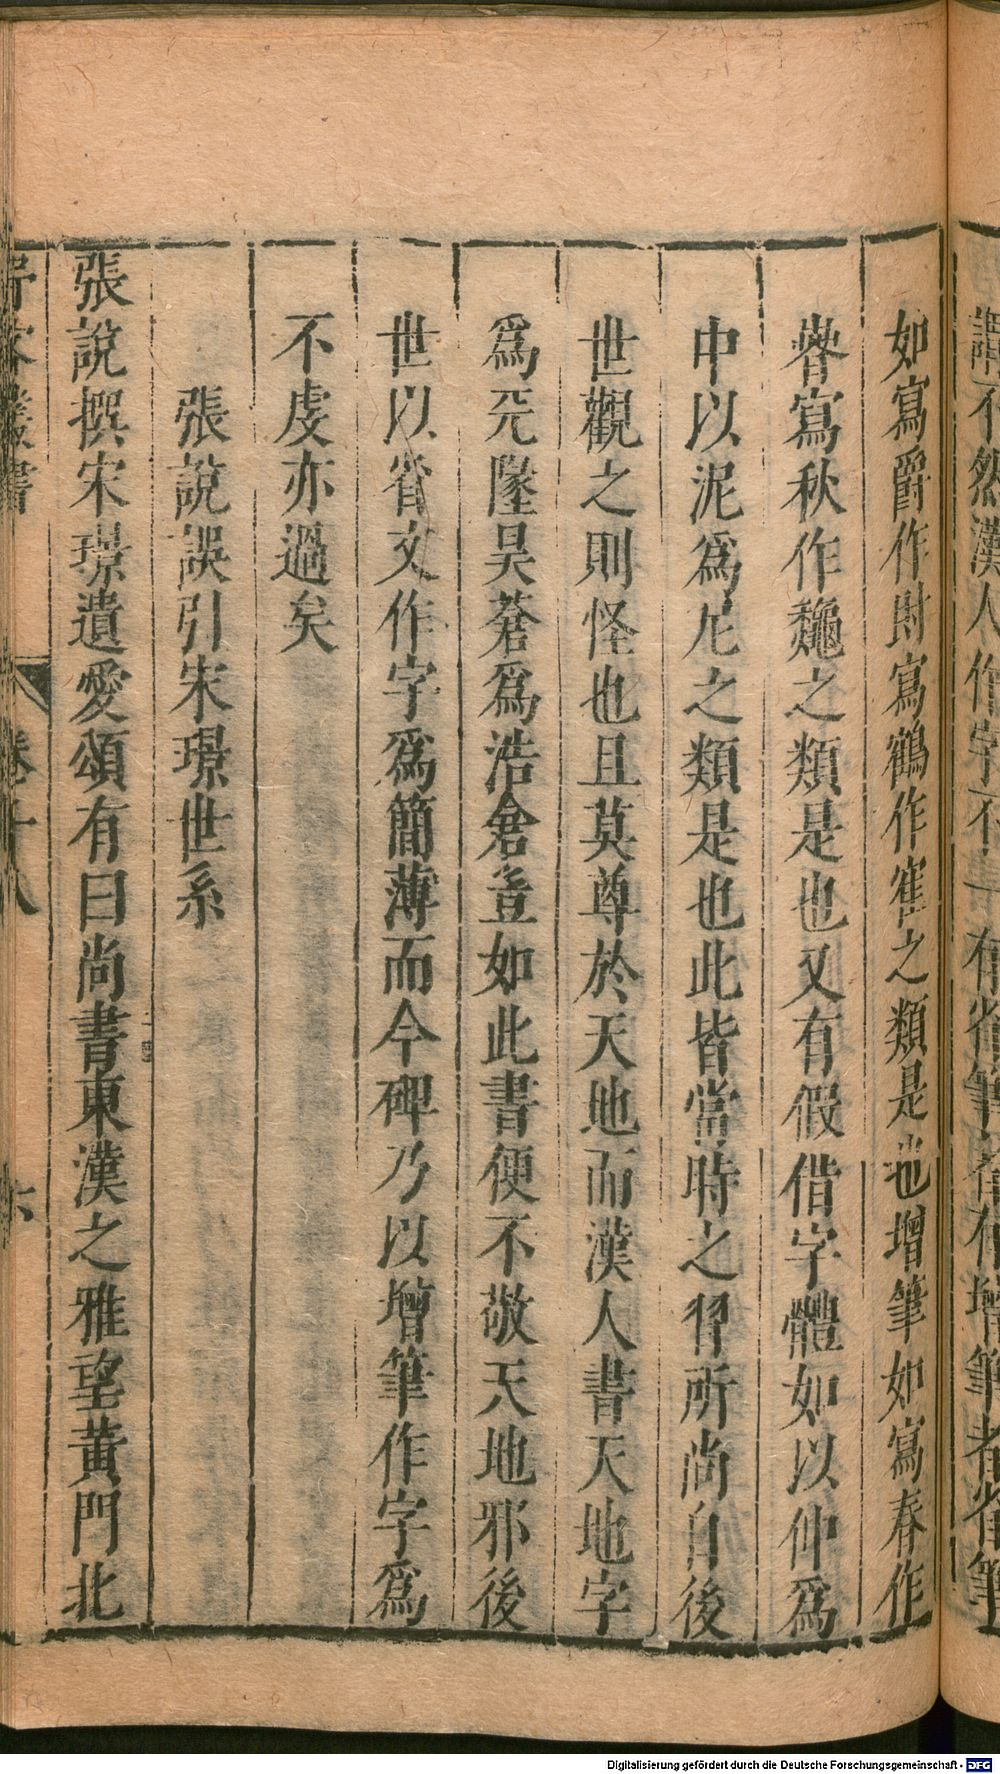 然漢人作字不一有省筆者有增筆者省筆
如寫爵作尉寫鶴作寉之類是也增筆如寫春作
萅寫秋作龝之類是也又有假借字體如以仲爲
中以泥爲尼之類是也此皆當時之習所尚自後
世觀之則怪也且莫尊於天地而漢人書天地字
爲兲墬昊蒼爲浩倉豈如此書便不敬天地邪後
世以省文作字爲簡薄而今碑乃以增筆作字爲
不虔亦過矣
張說誤引宋璟世系
張說撰宋璟遺愛頌有曰尚書東漢之雅望黃門北
叢書
卷十八
六
Digitalisierung gefördert durch die Deutsche Forschungsgemeinschaft - DFG